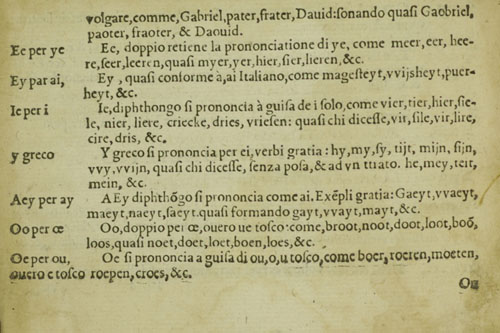 volgare,comme, Gabriel,pater,frater, Dauid:sonando quasi Gaobriel,
paoter, fraoter, & Daouid.
Ee per ye Ee, doppio retiene la prononciatione di ye, come meer,eer, hee-
re,seer,leeren, quasi myer,yer,hier,sier,lieren, &c.
Ey par ai, Ey , quasi conforme à,ai Italiano,come magesteyt,vvijsheyt,puer-
heyt, &c.
Ie per i Ie,diphthongo si prononcia à guisa de i solo,come vier,tier,hier,sie-
le, nier, liere, criecke, dries, vriesen: quasi chi dicesse,vir,sile,vir,lire,
cire, dris, &c.
y greco Y greco si prononcia per ei, verbi gratia : hy,my,sy, tijt, mijn, sijn,
vvy,vvijn, quasi chi dicesse, senza posa, & ad vn tratto. he,mey,teit,
mein, &c.
Aey per ay AEy diphthõgo si prononcia come ai. Exẽpli gratia: Gaeyt,vvaeyt,
maeyt,naeyt,saeyt.quasi formando gayt,vvayt,mayt,&c.
Oo per œ Oo,doppio per œ,ouero ue tosco:come,broot,noot,doot,loot,boõ,
loos,quasi noet,doet,loet,boen,loes,&c.
Oe per ou, Oe si prononcia a guisa di ou,o,u tosco,come boer,roeren,moeten,
ouero e tosco roepen, croes, &c.
Ou